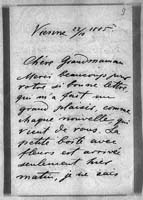 9
Vienne 1885
Chère Grandmaman
Merci beaucoup pour
votre si bonne lettre,
qui m'a fait un
grand plaisir, comme
chaque nouvelle qui
vient de vous. La
petite boîte avec
fleurs est arrivée
seulement hier
matin, je